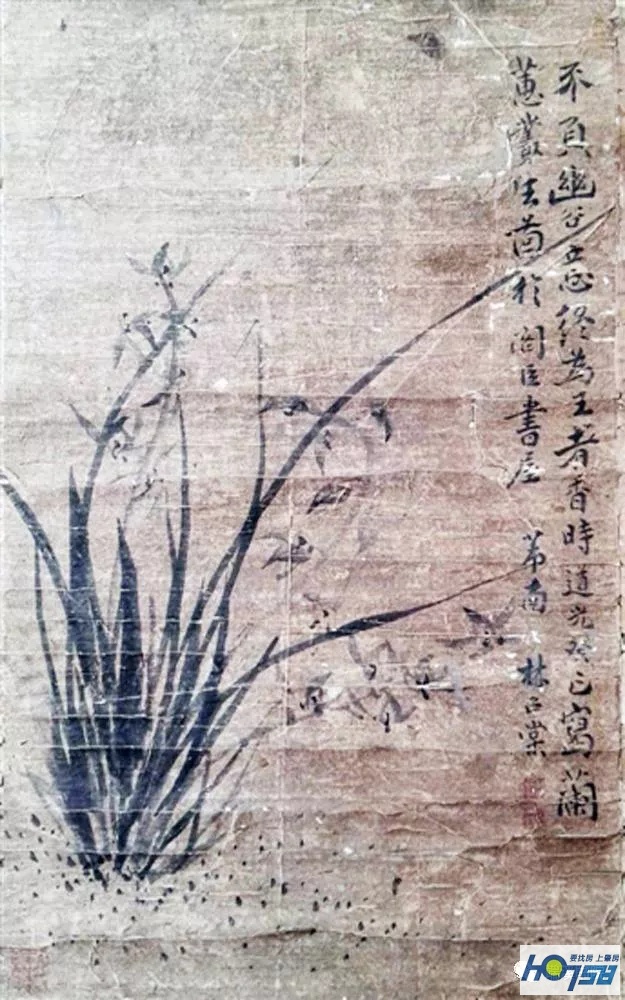 不負幽谷志終為王者香時道光癸巳寫蘭
蕙叢生啚於臣書屋
芾南 林召棠
要找房 上肇房
HO758